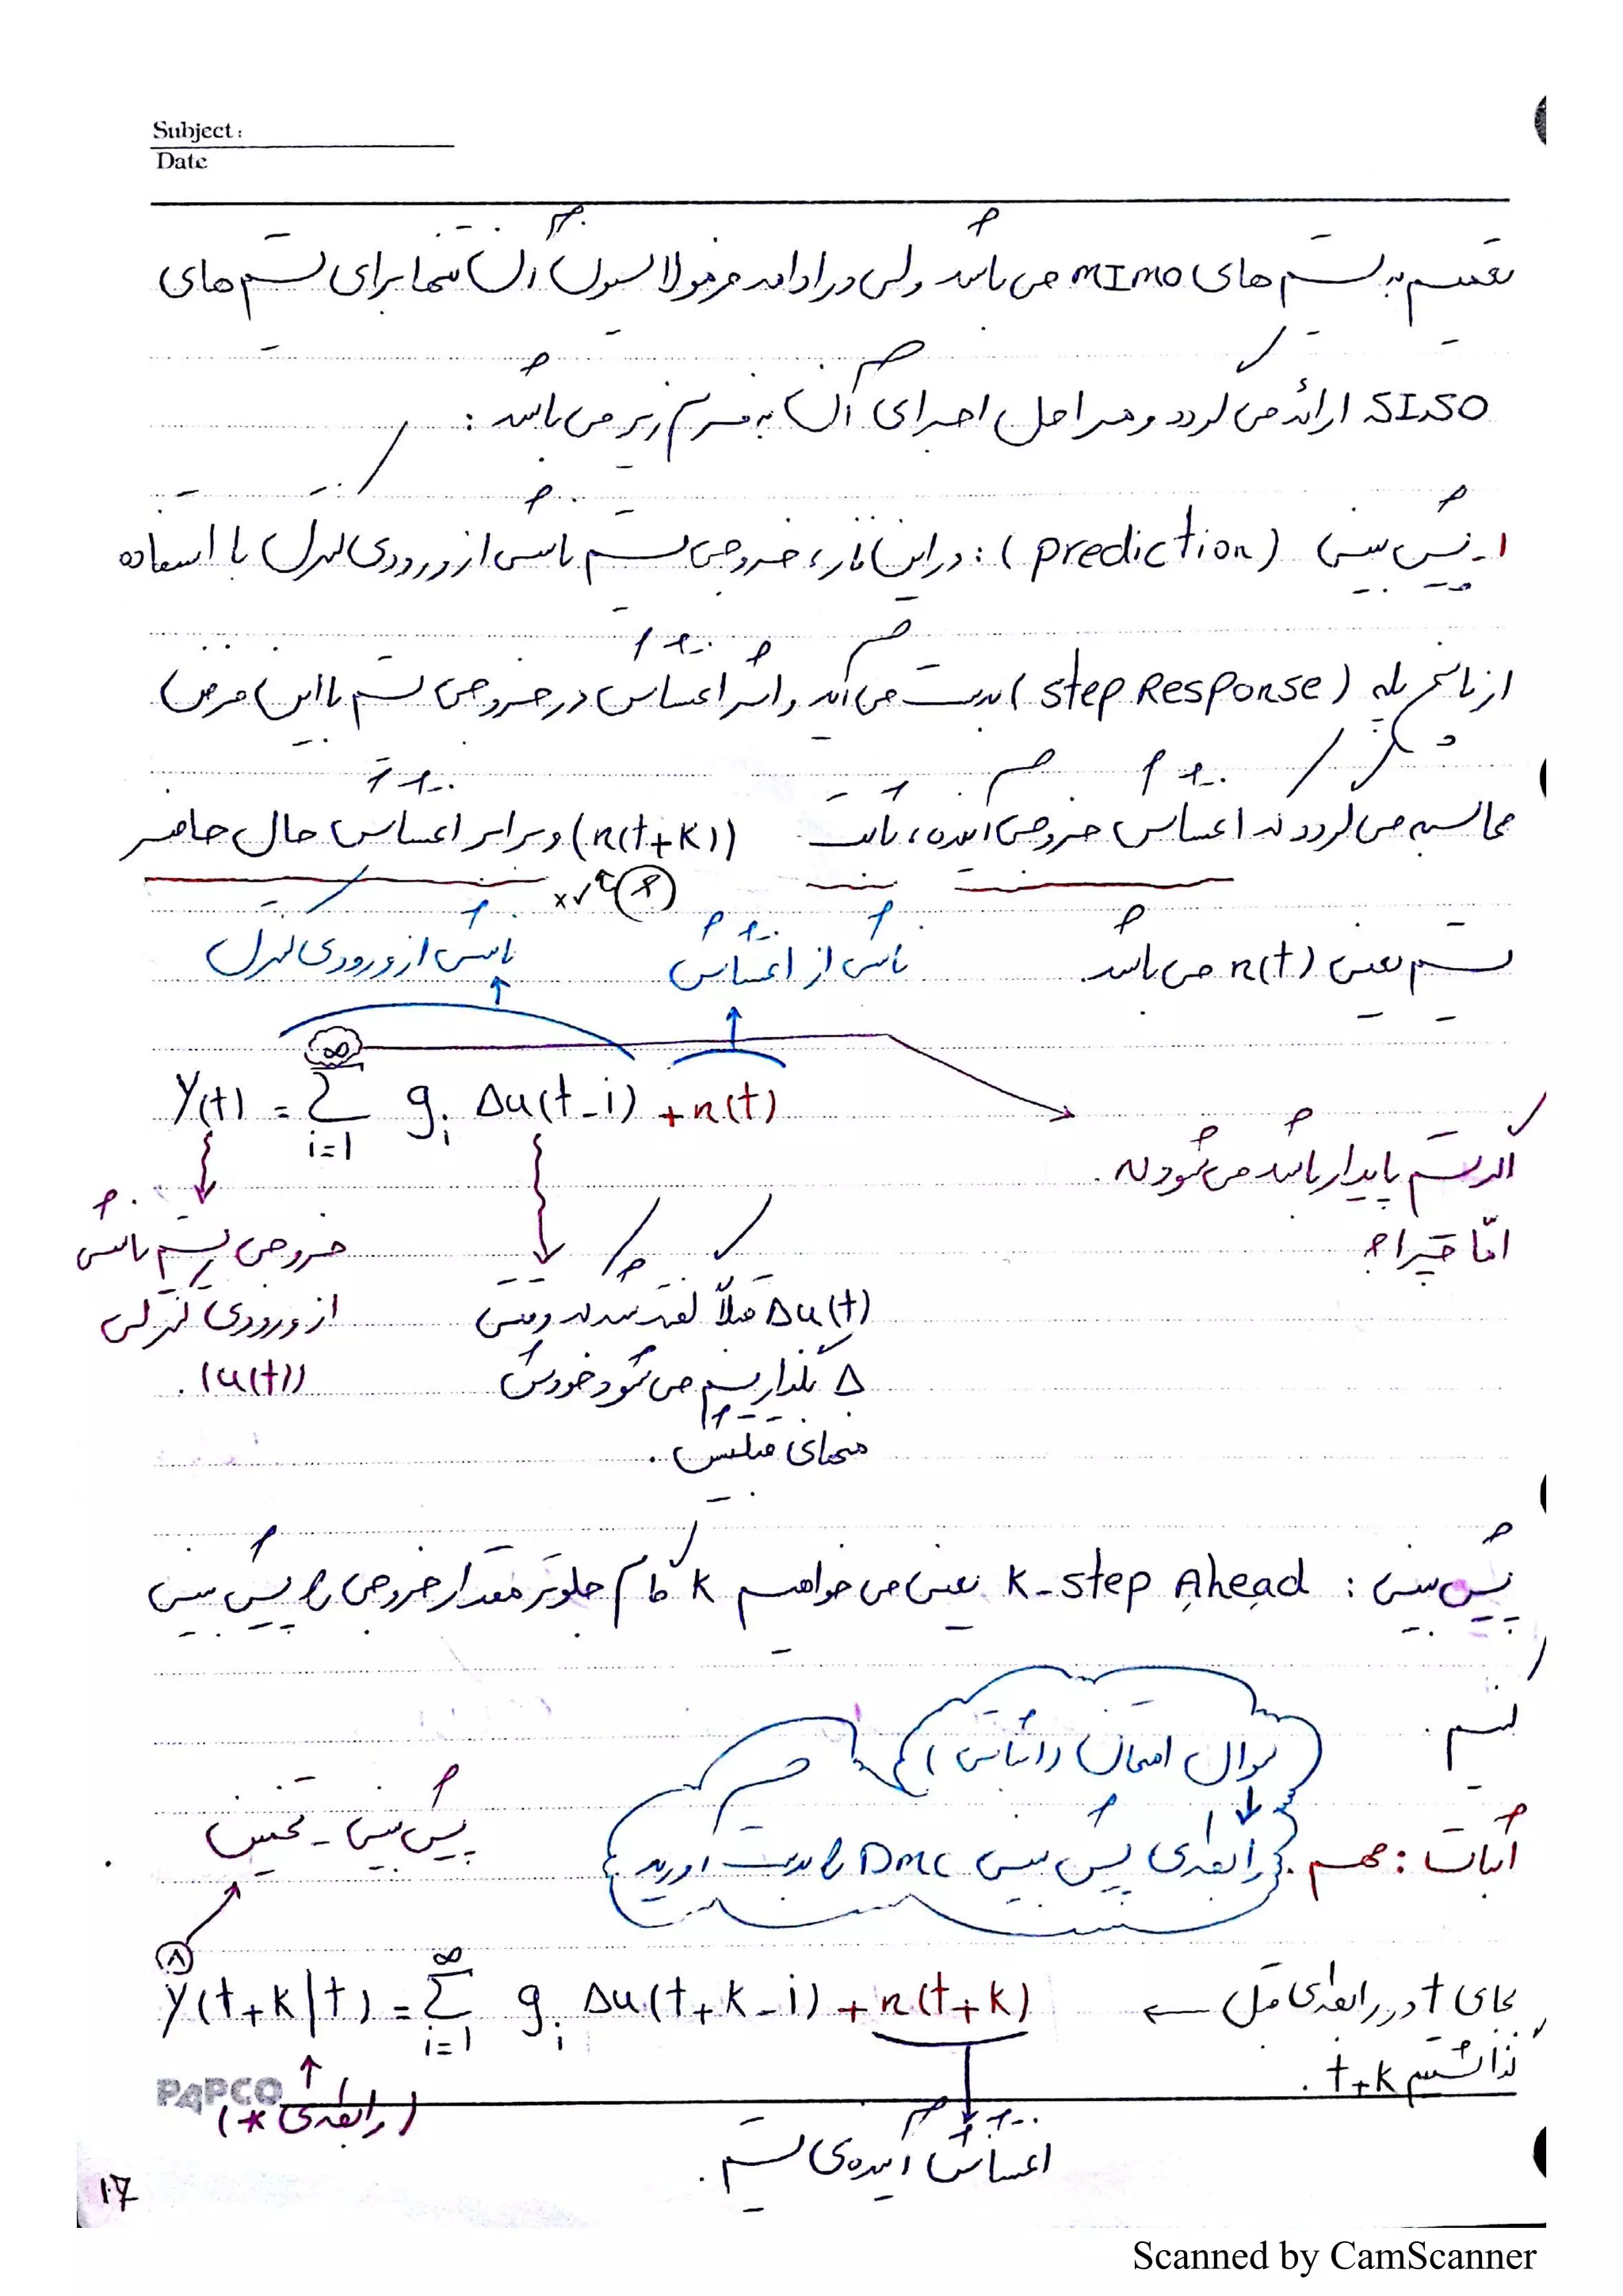 Subject:
Date
تعمیم به سیستم های MIMO می باشد ولی در ادامه فرمولاسیون آن تنها برای سیستم های
SISO ارائه می گردد و مراحل اجرای آن به فرم زیر می باشد :
۱- پیش بینی (prediction) : در این فاز، خروجی سیستم ناشی از ورودی کنترل با استفاده
از پاسخ پله (step Response) بدست می آید و اثر اغتشاش در خروجی سیستم با این فرض
محاسبه می گردد که اغتشاش خروجی آینده، ثابت (n(t+k)) و برابر اغتشاش حال حاضر
سیستم یعنی n(t) می باشد.
ناشی از اغتشاش
ناشی از ورودی کنترل
y(t) = ∞ Σ i=1 gi Δu(t-i) + n(t)
اگر سیستم پایدار باشد می شود له.
امّا چیرا؟
خروجی سیستم ناشی
از ورودی کنترلی
(u(t)).
Δu(t) قبلاً گفته شد که وقتی
Δ بگذاریم می شود خودش
منهای قبلیش.
پیش بینی : K-step Ahead یعنی می خواهیم K گام جلوتر مقدار خروجی را پیش بینی
کنیم.
سوال امتحان (اثباتش)
اثبات : مهم. رابطه ی پیش بینی DMC را بدست آورید.
پیش بینی - تخمین
ŷ(t+k|t) = ∞ Σ i=1 gi Δu(t+k-i) + n(t+k)
بجای t در رابطه ی قبل ←
گذاشتیم t+k.
PAPCO
(رابطه ی *)
اغتشاش آینده ی سیستم.
۱۰۷
Scanned by CamScanner